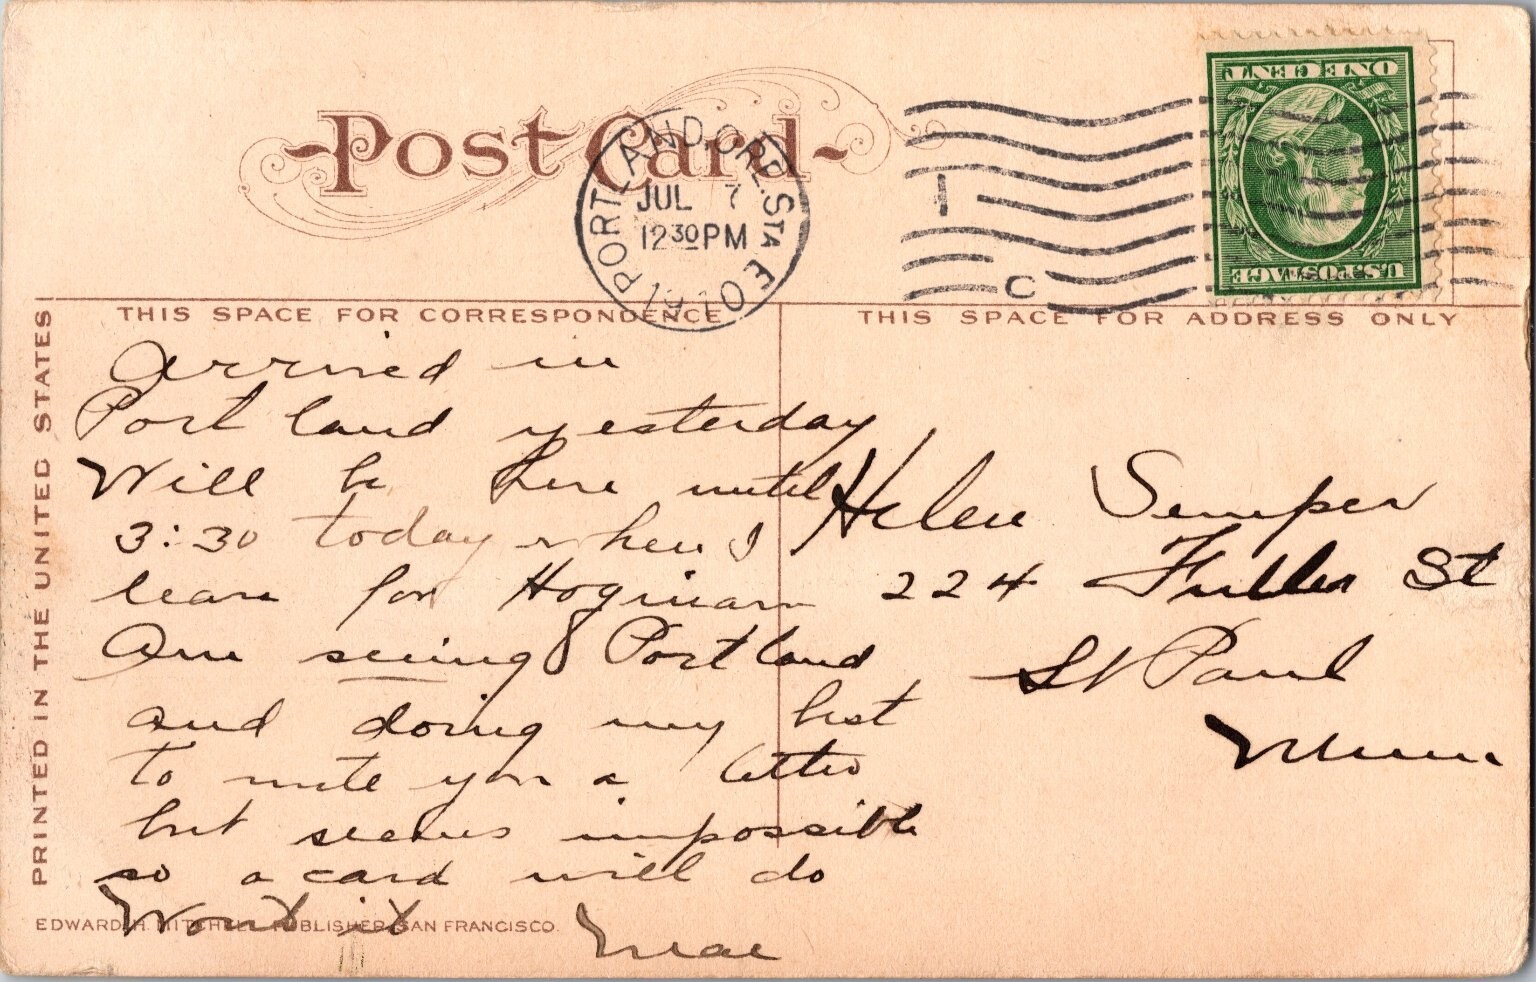 Post Card
PORTLAND ORE. STA. E
JUL 7
12 30 PM
1910
1
C
ONE CENT
U.S. POSTAGE
THIS SPACE FOR CORRESPONDENCE
THIS SPACE FOR ADDRESS ONLY
PRINTED IN THE UNITED STATES
Arrived in
Portland yesterday
Will be here until
3:30 today when I
leave for Hoquiam
Am seeing Portland
and doing my best
to write you a letter
but seems impossible
so a card will do
Wont it
Mae
Helen Semper
224 Fuller St
St Paul
Minn
EDWARD H. MITCHELL, PUBLISHER, SAN FRANCISCO.